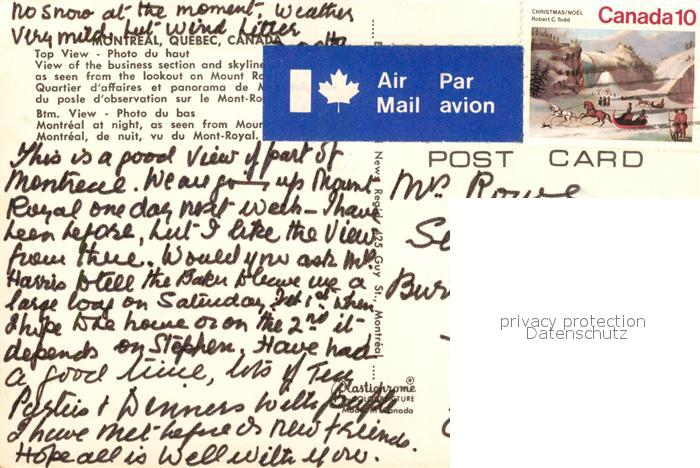 No snow at the moment. Weather
Very mild, but Wind bitter
MONTREAL, QUEBEC, CANADA
Top View - Photo du haut
View of the business section and skyline
as seen from the lookout on Mount Ro
Quartier d'affaires et panorama de M
du posle d'observation sur le Mont-Ro
Btm. View - Photo du bas
Montréal at night, as seen from Moun
Montréal, de nuit, vu du Mont-Royal.
This is a good View of part of
Montreal. We are going up Mount
Royal one day next week - I have
been before, but I like the View
from there. Would you ask Mrs
Harris to tell the Baker to leave me a
large loaf on Saturday, 1st when
I hope to be home or on the 2nd it
depends on Stephen. Have had
a good time, lots of Tea
Parties & Dinners with people
I have met before & new friends.
Hope all is well with you.
Air Par
Mail avion
CHRISTMAS/NOËL
Robert C. Todd
Canada 10
POST CARD
Mrs Rowe
Se
Bur
News Regd. 425 Guy St., Montréal
Plastichrome®
COLOURPICTURE
Made in Canada
privacy protection
Datenschutz